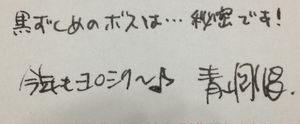 黒ずくめのボスは… 秘密です!
今年もヨロシク〜♪ 青山剛昌.